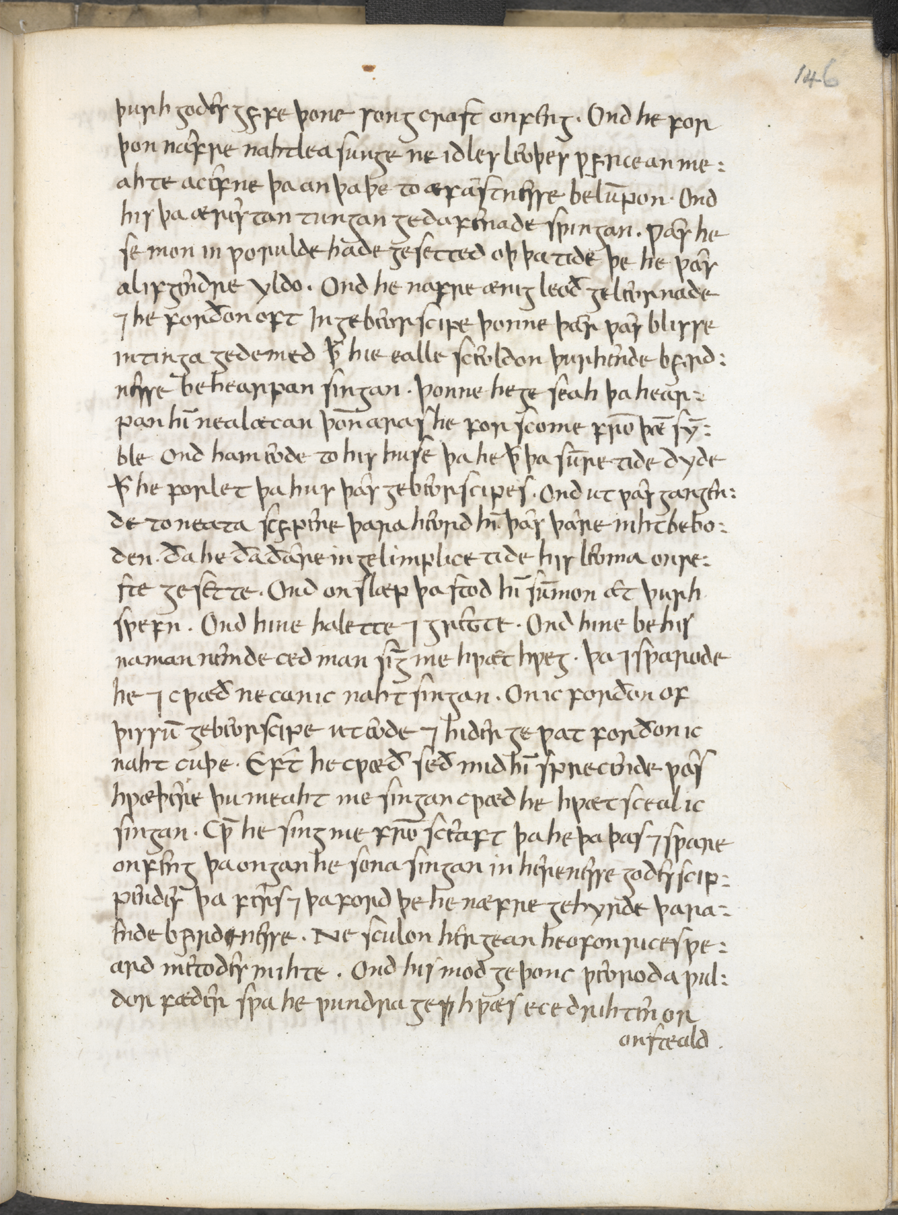 146
þurh godes gyfe þone songcræft onfeng. Ond he for
þon næfre naht leasunge ne idles leoþes wyrcean me:
ahte ac efne þa an þa þe to æfæstnesse belūpon. Ond
his þa æfestan tungan gedafenade singan. wæs he
se mon in worulde hade geseted oþ þa tide þe he wæs
alifgendre yldo. Ond he næfre ænig leoð geleornade
⁊ he forðon oft In gebeorscipe þonne þær wæs blisse
intinga gedemed ꝥ hie ealle sceoldon þurh ende byrd:
nesse be hearpan singan. þonne he ge seah þa hear:
pan hī nealæcan þoñ aras he for scome frō þǣ sȳ:
ble Ond ham eode to his huse þa he ꝥ þa sūre tide dyde
ꝥ he forlet þa hus þæs gebeorscipes. Ond ut wæs gangen:
de to neata scypene þara heord hī wæs þære niht bebo:
den. ða he ða ðære in gelimplice tide his leoma on re:
ste gesette. Ond onslæp þa stod hī sūmon æt þurh
swefn. Ond hine halette ⁊ grette. Ond hine be his
naman nemde cedman siñg me hwæt hweg. þa ⁊swarode
he ⁊ cwæð ne can ic naht singan. On ic forðon of
þissū gebeorscipe ut eode ⁊ hider gewat forðon ic
naht cuþe. Eft he cwæð seð mid hī sprecende wæs
hwæþere þu meaht me singan cwæð he hwæt sceal ic
singan. Cw̄ he sing me frō sceaft þa he þa þas ⁊sware
onfeng þa ongan he sona singan in herenesse godes scip:
pendes þa fers ⁊ þa word þe he næfre gehyrde þara:
ende byrdnesse. Ne sculon hergean heofonrices we:
ard metodes mihte. Ond his mod geþonc weoroda wul:
dor fæder swa he wundra gewhwæs ece drihten or
onsteald